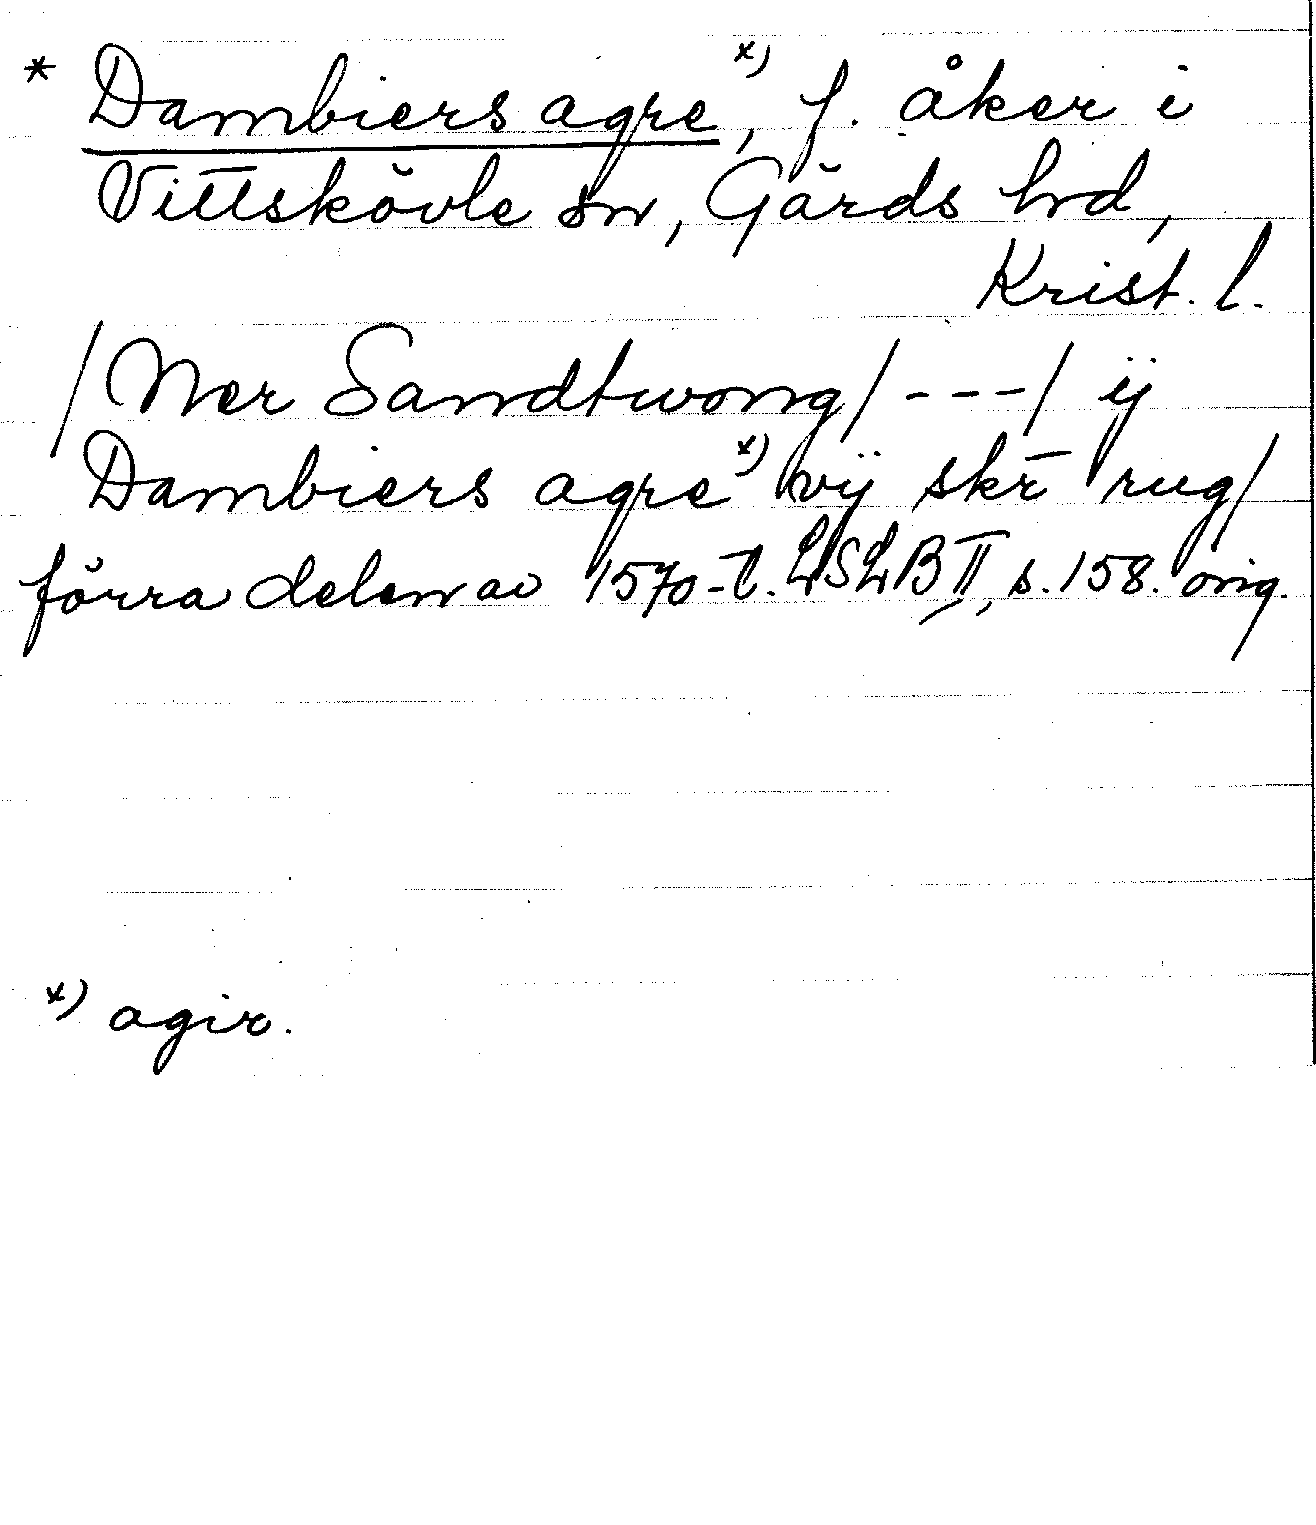 * Dambiers agre x), f. åker i
Vittskövle sn, Gärds hd,
Krist. l.
/Mer Sandtwong/---/ ij
Dambiers agre x) vij skr̄ rug/
förra delen av 1570-t. LSLB II, s. 158. orig.
x) agir.